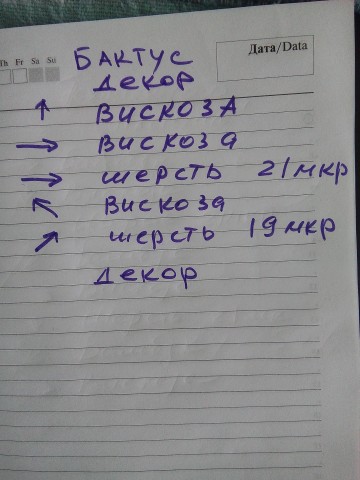 Th Fr Sa Su
Дата/Data
БАКТУС
ДЕКОР
↑ ВИСКОЗА
→ ВИСКОЗА
→ ШЕРСТЬ 21 МКР
↖ ВИСКОЗА
↗ ШЕРСТЬ 19 МКР
ДЕКОР